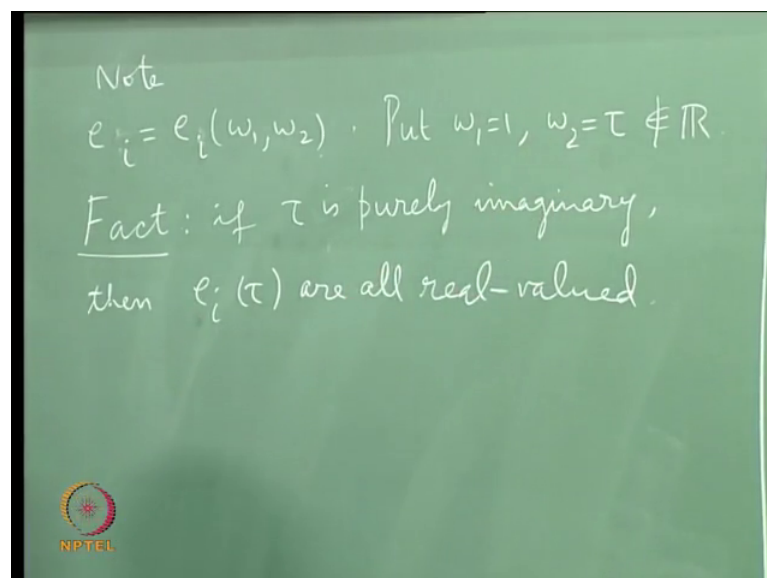 Note
e_i = e_i(ω_1, ω_2) . Put ω_1=1, ω_2=τ ∉ ℝ.
Fact : if τ is purely imaginary,
then e_i(τ) are all real-valued.
NPTEL